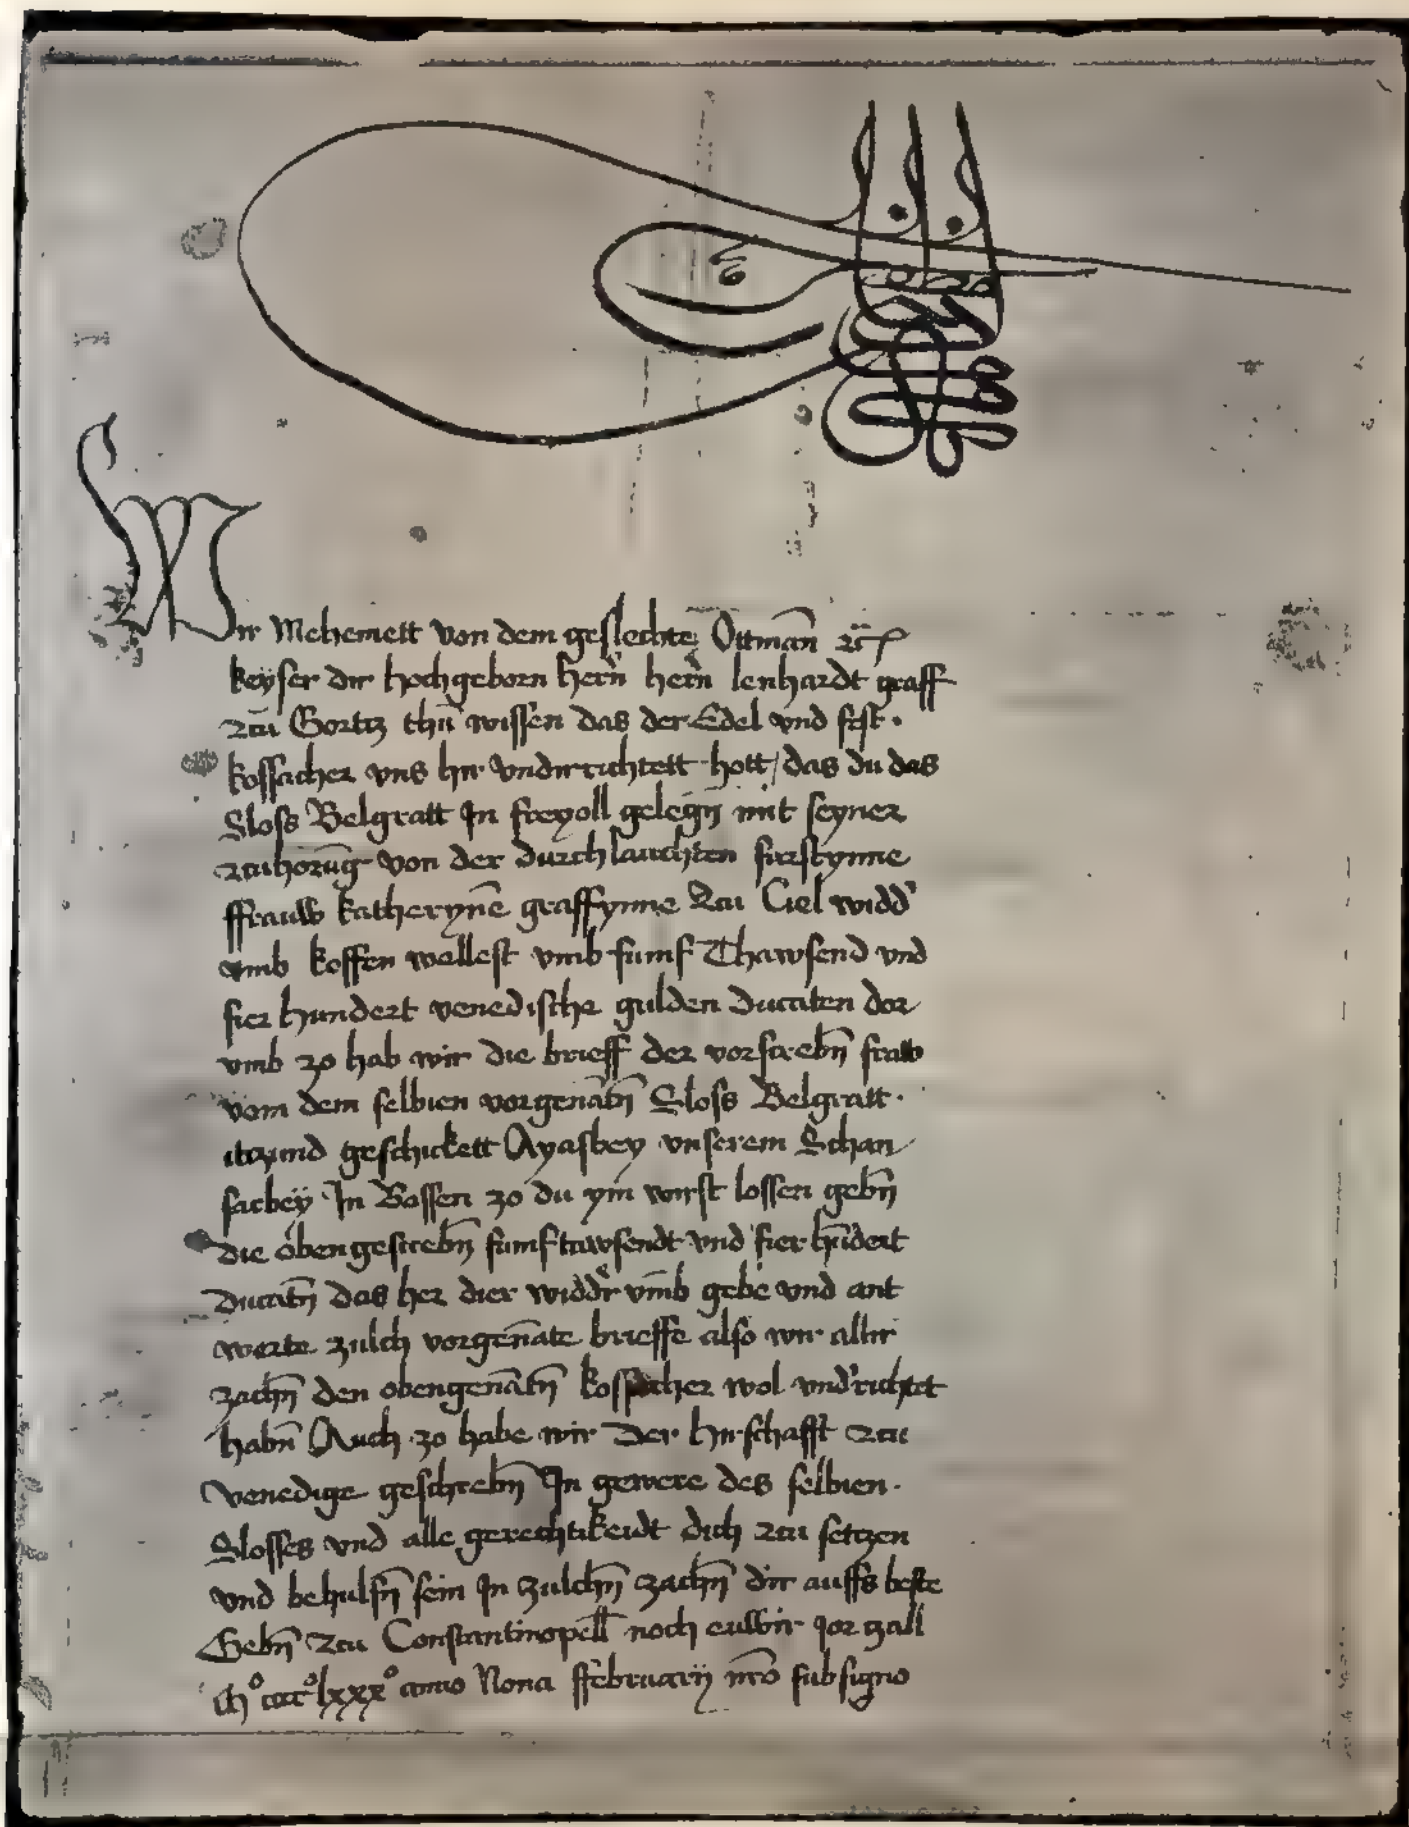 Wir Mehemett von dem geslechte Ottmañ ꝛc̃
keyser dir hochgeborn hern̄ hern̄ lenhardt graff
zcu Gortz thu wissen das der Edel vnd fest.
kossacher vns hir vndirrichtett hott / das du das
Sloss Belgratt In freyoll gelegn̄ mit seyner
zcuhorūg von der durchlauchten furstynne
ffrauw katherynē graffynne zcu Ciel widd'
vmb koffen wellest vmb funf Thawsend vnd
fier hundert venedische gulden Ducaten dor
vmb zo hab wir die brieff der vorscrebn̄ fraw
vom dem selbien vorgenātn̄ Sloss Belgratt.
itzund geschickett Ayasbey vnserem Schan
sacbeÿ In Bossen zo du ym wirst lossen gebn̄
die obengescrebn̄ funftawsendt vnd fier hūdert
Ducatn̄ das her dier widdr vmb gebe vnd ant
worte zulch vorgenāte brieffe also wir allir
zachn̄ den obengenātn̄ kossacher wol vnd'richtet
habn̄ Auch zo habe wir Der hirschafft zcu
venedige geschrebn̄ In gewere des selbien.
Slosses vnd alle gerechtikeidt dich zcu setzen
vnd behulfn̄ sein In zulchn̄ zachn̄ dir auffs beste
Gebn̄ zcu Constantinopell noch euwir jor tzall
Mº ccccº lxxxº anno Nona ffebruarij nr̄o sub signo